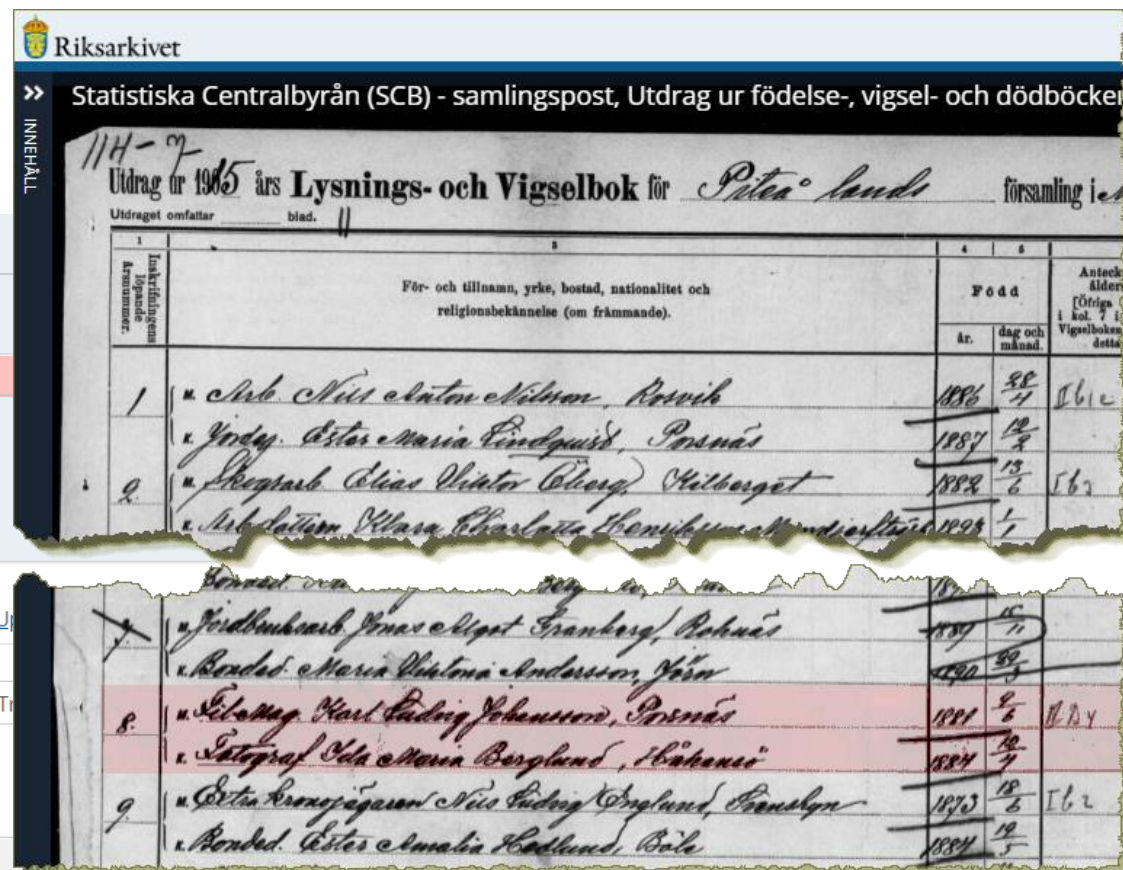 Riksarkivet
Statistiska Centralbyrån (SCB) - samlingspost, Utdrag ur födelse-, vigsel- och dödböcker
INNEHÅLL
114-7
Utdrag ur 1915 års Lysnings- och Vigselbok för Piteå lands församling i
Utdraget omfattar blad. 11
1 3 4 5
Inskrifningens löpande årsnummer.
För- och tillnamn, yrke, bostad, nationalitet och
religionsbekännelse (om främmande).
Född
år. dag och månad.
Anteck
ålder
[Öfriga
i kol. 7 i
Vigselboken
detta
1 m. Arb. Nils Anton Nilsson, Rosvik 1886 28/4
k. Jordeg. Ester Maria Lindquist, Porsnäs 1887 19/2
2. m. Skogsarb. Elias Viktor Öberg, Kilberget 1882 13/6
k. Arb.dottern Klara Charlotta Henriksson 1/1
7. m. Jordbruksarb. Jonas Algot Granberg, Roknäs 1889
k. Bonded. Maria Viktoria Andersson, Jörn 1890
8. m. Fil.Mag. Karl Ludvig Johansson, Porsnäs 1881 9/6
k. Fotograf Ida Maria Berglund, Håkansö 1884 10/4
9. m. Extra kronojägaren Nils Ludvig Englund, Svensbyn 1873 18/6
k. Bonded. Ester Amalia Hedlund, Böle 1884 19/5